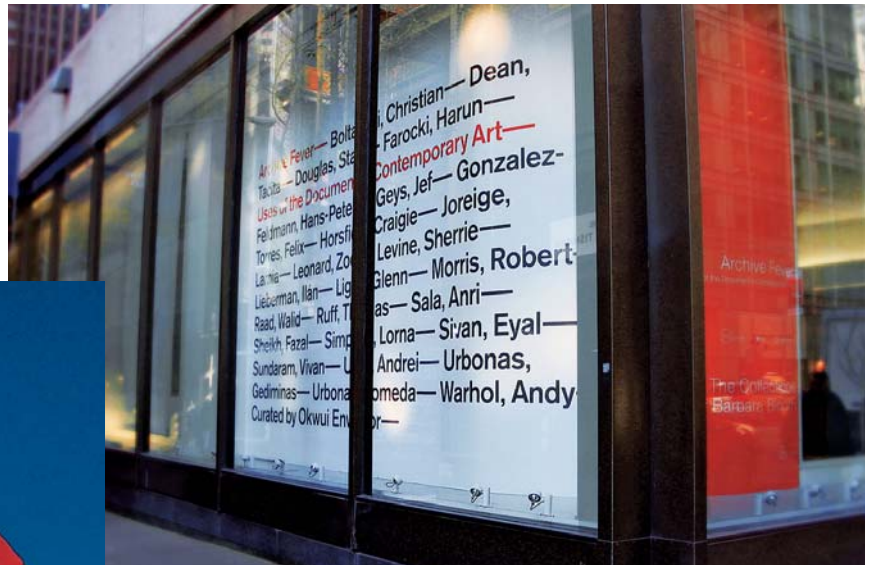 Archive Fever— Christian— Dean,
Tacita— Douglas, Farocki, Harun—
Uses of the Contemporary Art—
Feldmann, Geys, Jef— Gonzalez-
Torres, Felix— Craigie— Joreige,
Lamia— Leonard, Levine, Sherrie—
Lieberman, Ilán— Glenn— Morris, Robert—
Raad, Walid— Ruff, Sala, Anri—
Sheikh, Fazal— Lorna— Sivan, Eyal—
Sundaram, Vivan— Andrei— Urbonas,
Gediminas— Warhol, Andy—
Curated by Okwui
Archive Fever
The
Barbara